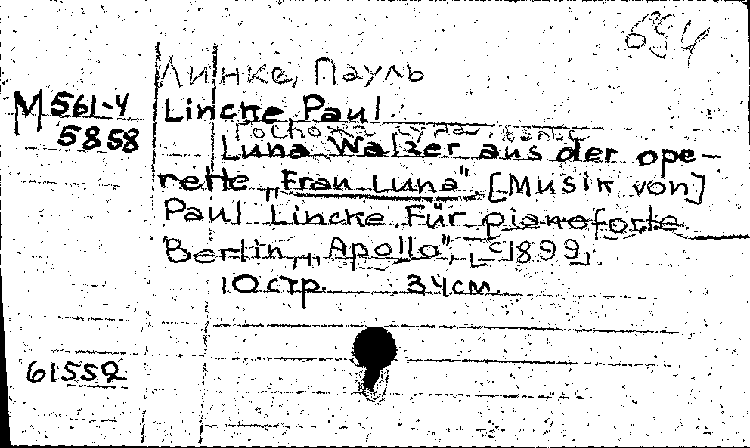 694
Линке, Пауль
М 561-4
5858
Lincke, Paul
Luna Walzer aus der ope-
rette „Frau Luna". [Musik von]
Paul Lincke Für pianoforte
Berlin, „Apollo", [c1899].
10 стр. 34 см.
61552